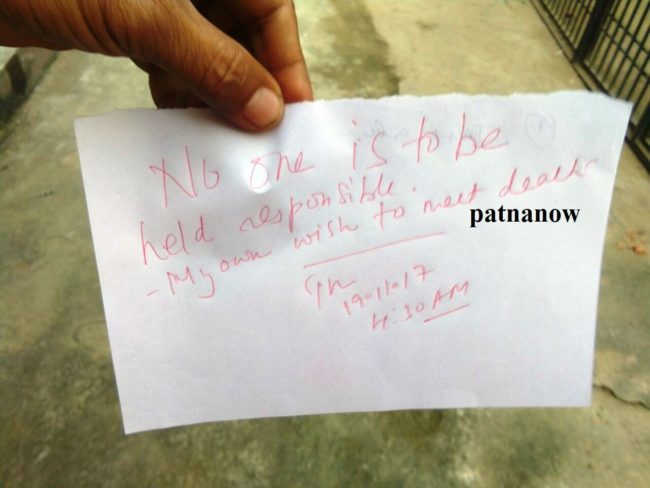 No one is to be
held responsible.
- My own wish to meet death
patnanow
4:30 AM